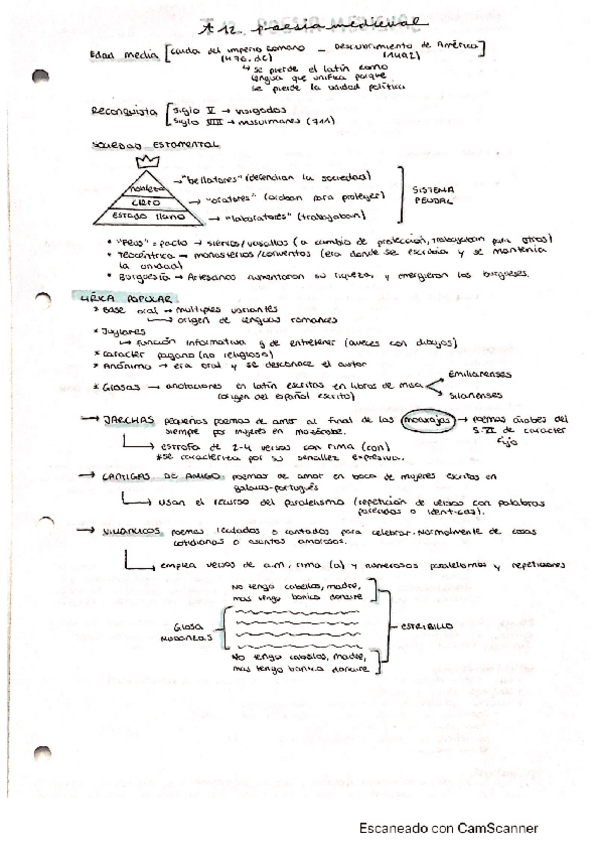 * A12. poesia medieval
Edad media [caida del imperio romano – Descubrimiento de América]
(476. dC) (1492)
↳ se pierde el latín como
lengua que unifica porque
se pierde la unidad política
Reconquista [siglo V → visigodos
siglo VIII → musulmanes (711)
SOCIEDAD ESTAMENTAL
nobleza → "bellatores" (defendían la sociedad)
clero → "oratores" (oraban para proteger)
estado llano → "laboratores" (trabajaban)
SISTEMA
FEUDAL
* "Feus" = pacto → siervos/vasallos (a cambio de protección, trabajaban para otros)
* Teocéntrica → monasterios/conventos (era donde se escribía y se mantenía
la unidad)
* Burguesía → Artesanos aumentaron su riqueza, y emergieron los burgueses.
LÍRICA POPULAR
* Base oral → multiples variantes
↳ origen de lenguas romances
* Juglares
↳ función informativa y de entretener (aveces con dibujos)
* Caracter pagano (no religioso)
* Anónimo → era oral y se desconoce el autor
* Glosas → anotaciones en latín escritas en libros de misa
(origen del español escrito)
emilianenses
silanenses
→ JARCHAS pequeños poemas de amor al final de las moaxajas → poemas árabes del
siempre por mujeres en mozárabe. S. XI de caracter
fijo
↳ estrofa de 2-4 versos con rima (con)
* se caracteriza por su sencillez expresiva.
→ CANTIGAS DE AMIGO poemas de amor en boca de mujeres escritas en
galaico-portugués
↳ usan el recurso del paralelismo (repetición de versos con palabras
parecidas o identicas).
→ VILLANCICOS poemas recitados o cantados para celebrar. Normalmente de cosas
cotidianas o asuntos amorosos.
↳ emplea versos de a.m, rima (a) y numerosos paralelismos y repeticiones
No tengo cabellos, madre,
mas tengo bonico donaire
GLOSA
MUDANZAS
ESTRIBILLO
No tengo cabellos, madre,
mas tengo bonico donaire
Escaneado con CamScanner